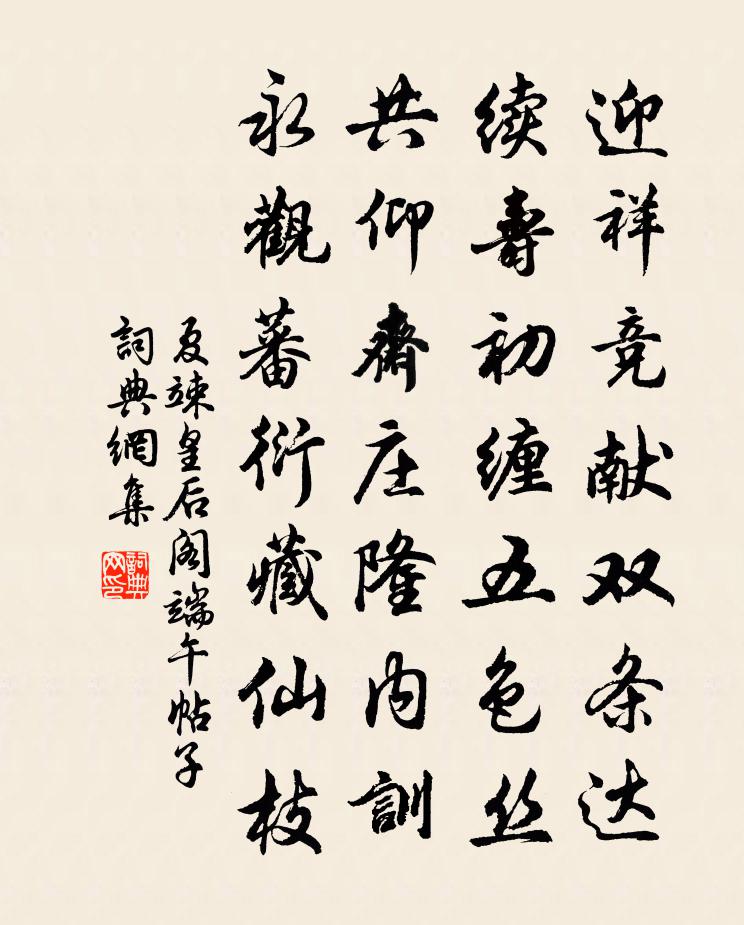 迎祥竞献双条达
续壽初缠五色丝
共仰齋庄隆内訓
永觀蕃衍藏仙枝
夏竦皇后阁端午帖子
詞典網集
詞典网印